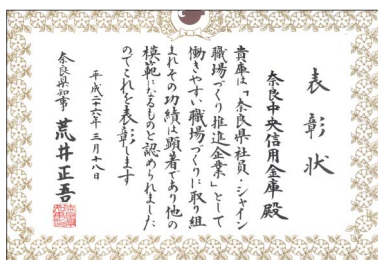 表彰状
奈良中央信用金庫 殿
貴庫は「奈良県社員・シャイン
職場づくり推進企業」として
働きやすい職場づくりに取り組
まれその功績は顕著であり他の
模範となるものと認められました
のでこれを表彰します
平成二十六年三月十八日
奈良県知事 荒井正吾